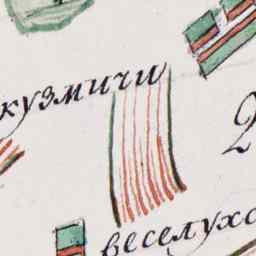 кузмичи
2
веселухо